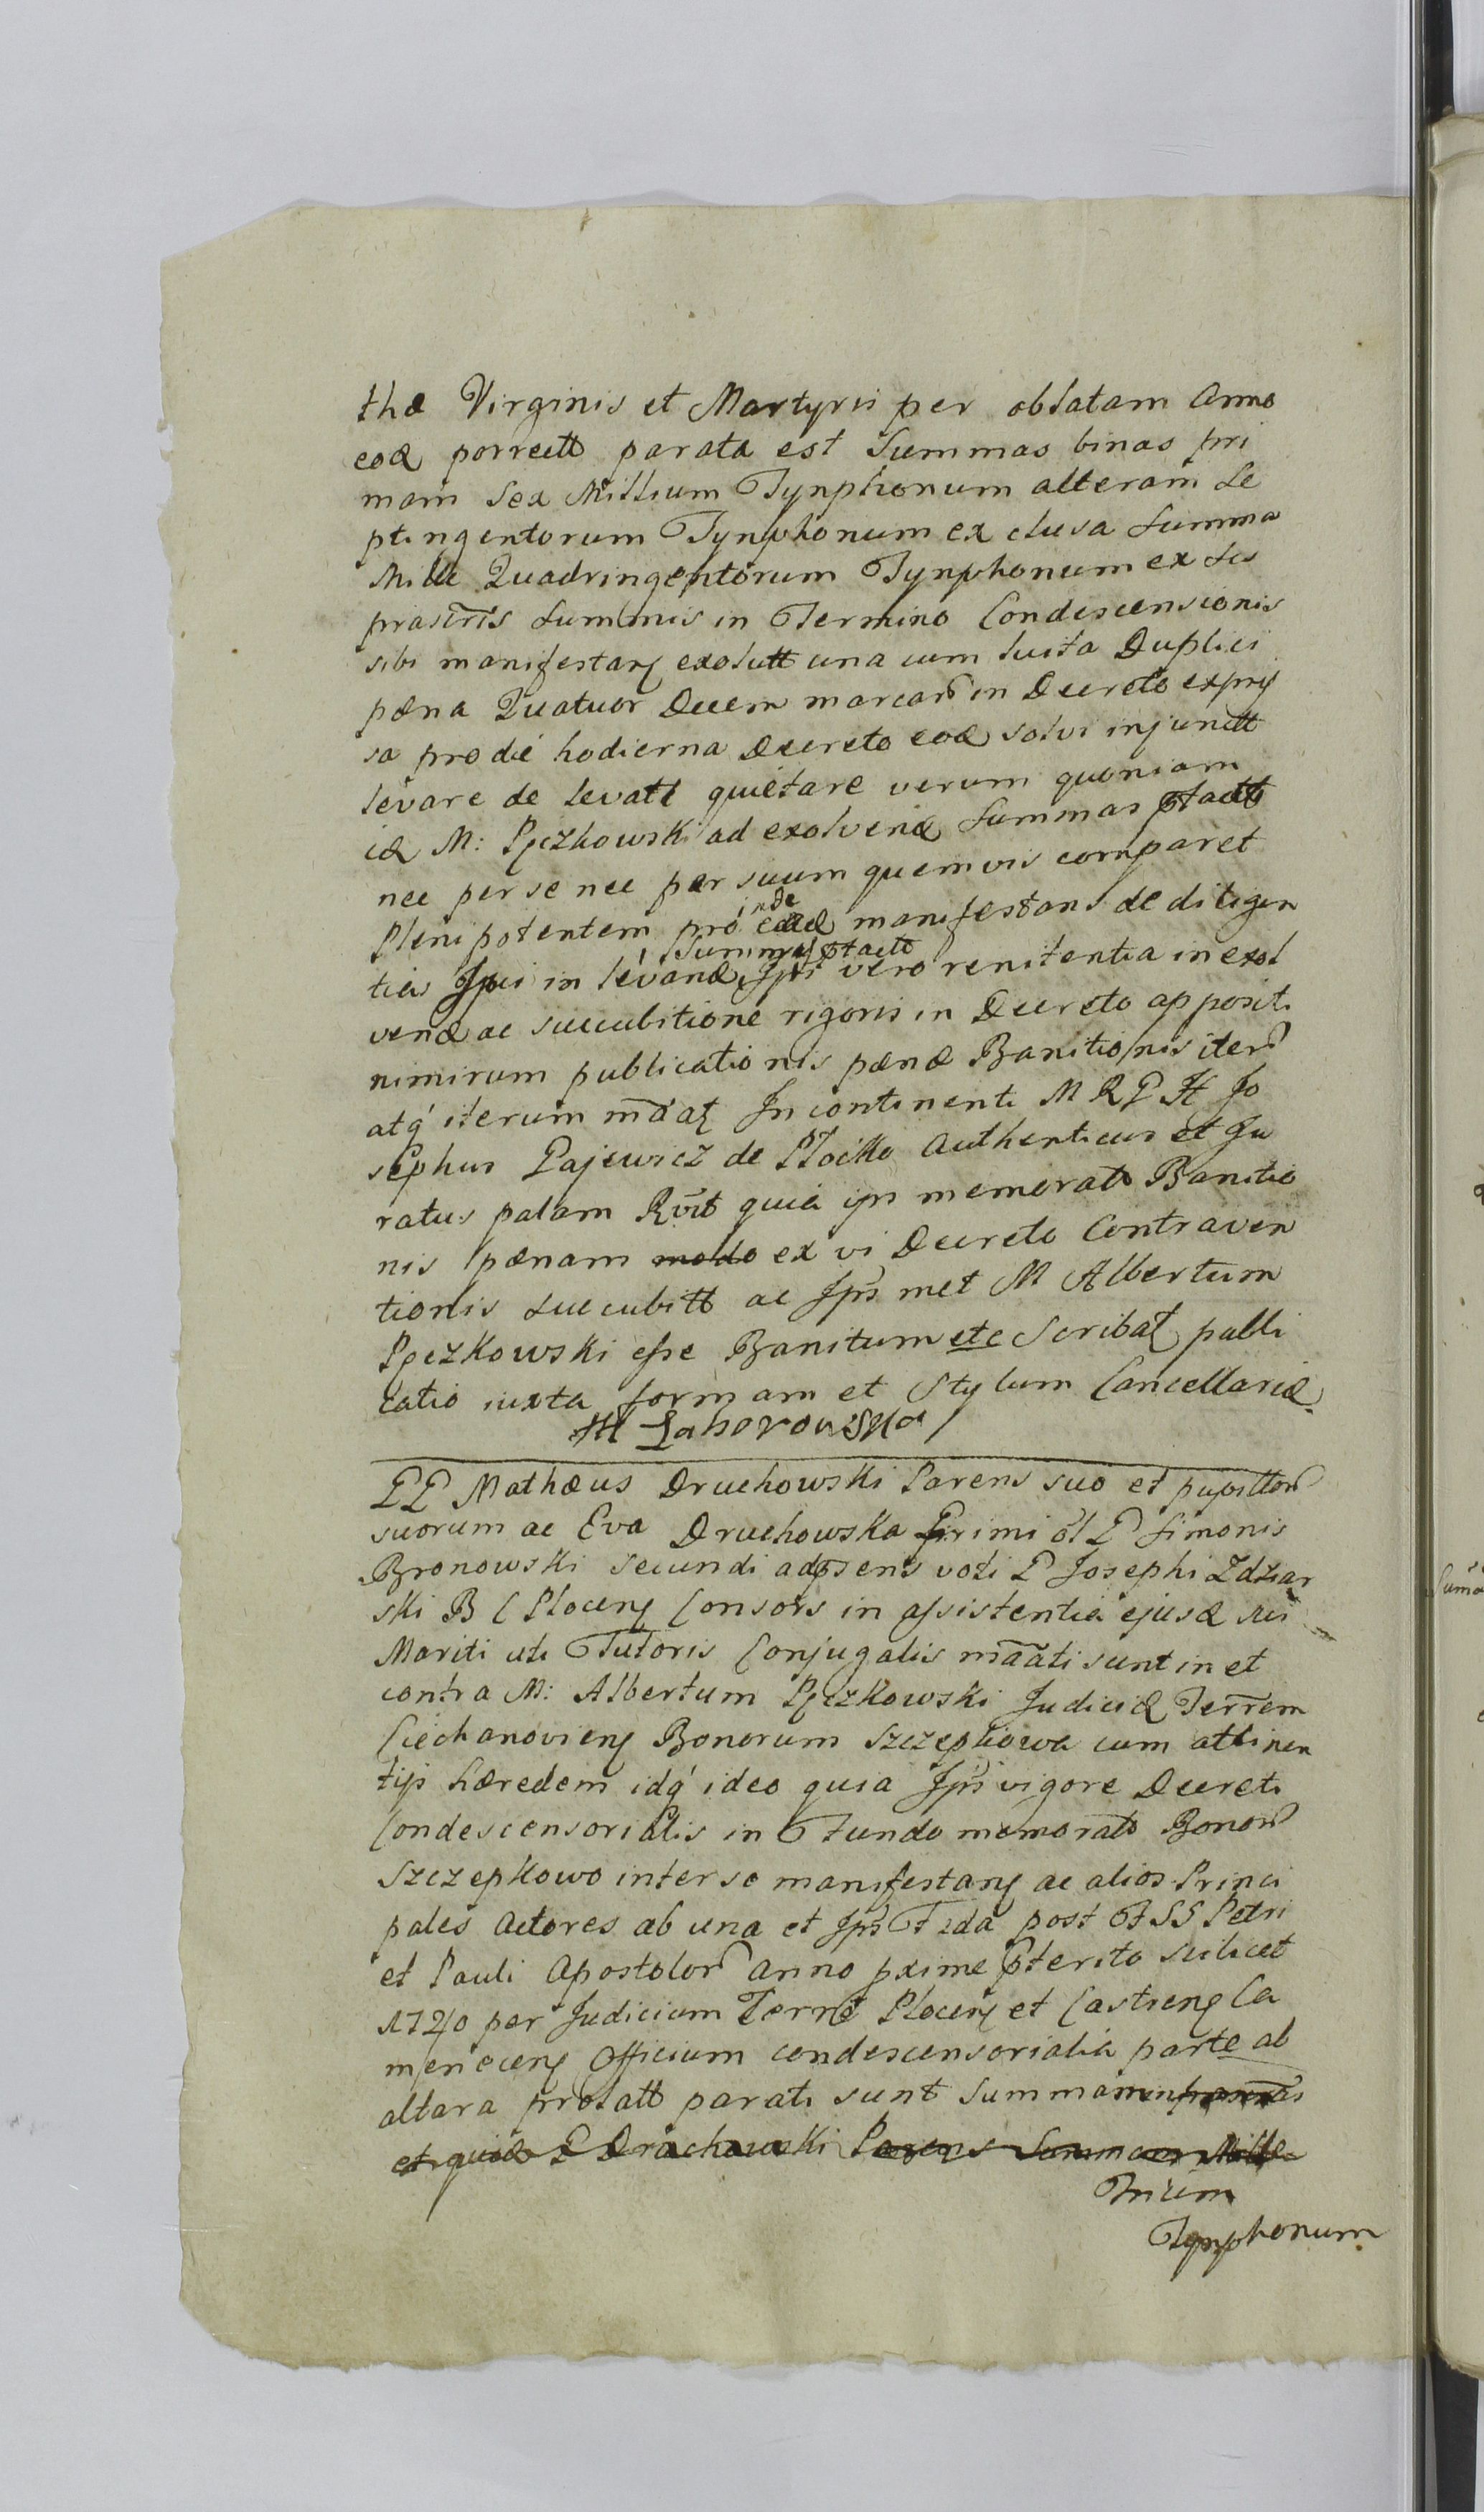 thæ Virginis et Martyris per oblatam Anno
eod porrectt parata est Summas binas pri
mam Sex Millium Tynphonum alteram Se
ptingentorum Tynphonum ex clusa Summa
Mille Quadringentorum Tynphonum ex sup
prascrts Summis in Termino Condescensionis
sibi manifestanz exolutt una cum luita Duplici
pæna Quatuor Decem marcar in Decreto expres
sa pro die hodierna Decreto eod solvi injunctt
levare de levatt quietare verum quoniam
id M: Pęczkowski ad exolvend Summas ptactt
nec per se nec per suum quemvis comparet
Plenipotentem pro inde eaed manifestans de diligen
tia Ipsi in levand Summas ptactt Ipsi vero renitentia in exol
vend ac succubitione rigoris in Decreto appositi
nimirum publicationis pænæ Banitionis iter
atq iterum maat Incontinenti M R P H Jo
sephus Pajewicz de Płocko Authenticus et Ju
ratus palam Rvit quia ips memoratt Banitio
nis pænam modo ex vi Decreto Contraven
tionis succubitt ac Ips met M Albertum
Pęczkowski esse Banitum etc Scribat publi
catio iuxta formam et Stylum Cancellariæ
PP Mathæus Druchowski Parens suo et pupillor
suorum ac Eva Druchowska Primi ol P Simonis
Bronowski secundi ad psens voti P Josephi Zdziar
ski B C Plocenz Consors in assistentia ejusd sui
Mariti uti Tutoris Conjugalis maati sunt in et
contra M: Albertum Pęczkowski Judicid Terrem
Ciechanovienz Bonorum Szczepkowa cum attinen
tijs hæredem idq ideo quia Ips vigore Decreti
Condescensorialis in Fundo memoratt Bonor
Szczepkowo inter se manifestanz ac alios Princi
pales Actores ab una et Ips F 2da post F SS Petri
et Pauli Apostolor Anno pxime pterito scilicet
1740 per Judicium Terre Plocenz et Castrenz Ca
menecenz Officium condescensorialia parte ab
altera prolatt parati sunt Summam
et quid P Druchowski Parens Summam Mille
Trium
Tynphonum